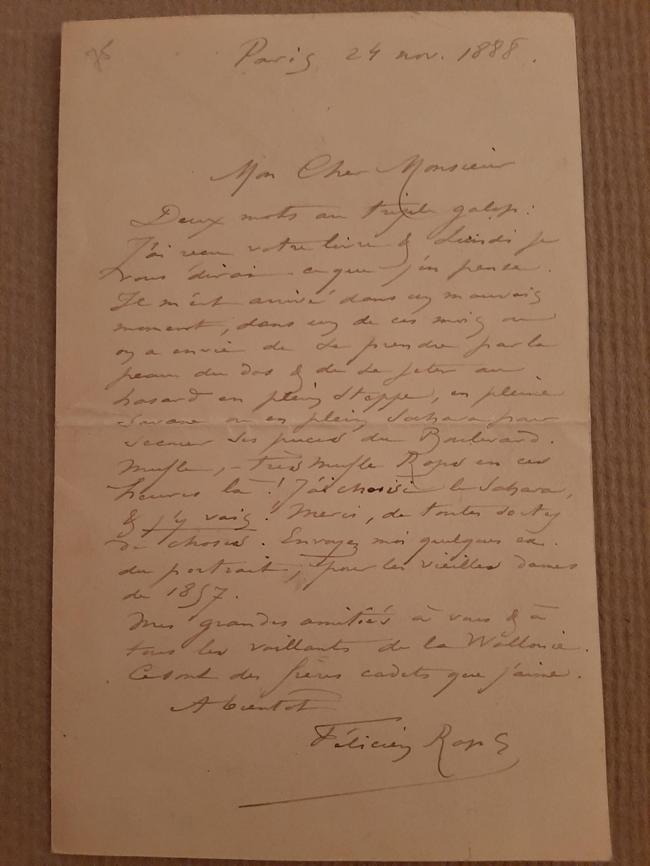 Paris 24 nov. 1888.
Mon Cher Monsieur
Deux mots au triple galop:
J'ai reçu votre livre & Lundi je
vous dirai ce que j'en pense.
Il m'est arrivé dans un mauvais
moment, dans un de ces mois où
on a envie de se prendre par la
peau du dos & de se jeter au
hasard en plein Steppe, en pleine
Savane ou en plein Sahara pour
secouer ses puces du Boulevard.
Mufle, – très Mufle Rops en ces
heures là! J'ai choisi le Sahara,
& j'y vais! Merci, de toutes sortes
de choses. Envoyez moi quelques ex.
du portrait, pour les vieilles dames
de 1857.
Mes grandes amitiés à vous & à
tous les vaillants de la Wallonie.
Ce sont des frères cadets que j'aime.
A bientôt
Félicien Rops